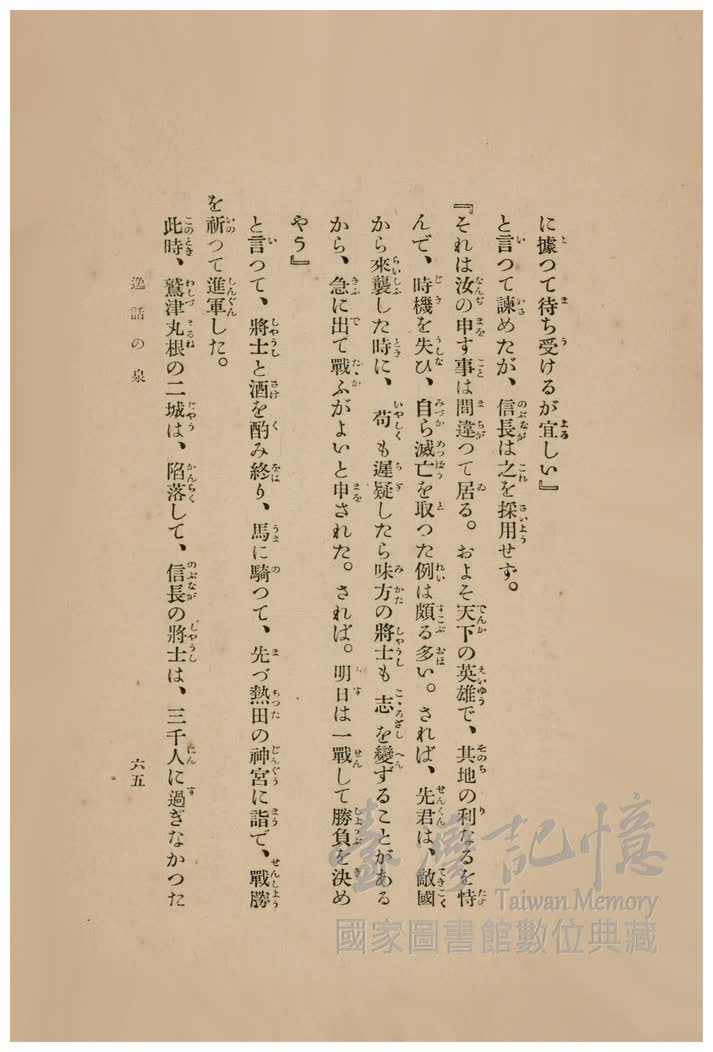 に據つて待ち受けるが宜しい』
と言つて諫めたが、信長は之を採用せず。
『それは汝の申す事は間違つて居る。およそ天下の英雄で、其地の利なるを恃
んで、時機を失ひ、自ら滅亡を取つた例は頗る多い。されば、先君は、敵國
から來襲した時に、苟も遲疑したら味方の將士も志を變ずることがある
から、急に出て戰ふがよいと申された。されば。明日は一戰して勝負を決め
やう』
と言つて、將士と酒を酌み終り、馬に騎つて、先づ熱田の神宮に詣で、戰勝
を祈つて進軍した。
此時、鷲津丸根の二城は、陷落して、信長の將士は、三千人に過ぎなかつた
逸話の泉
六五
臺灣記憶
Taiwan Memory
國家圖書館數位典藏